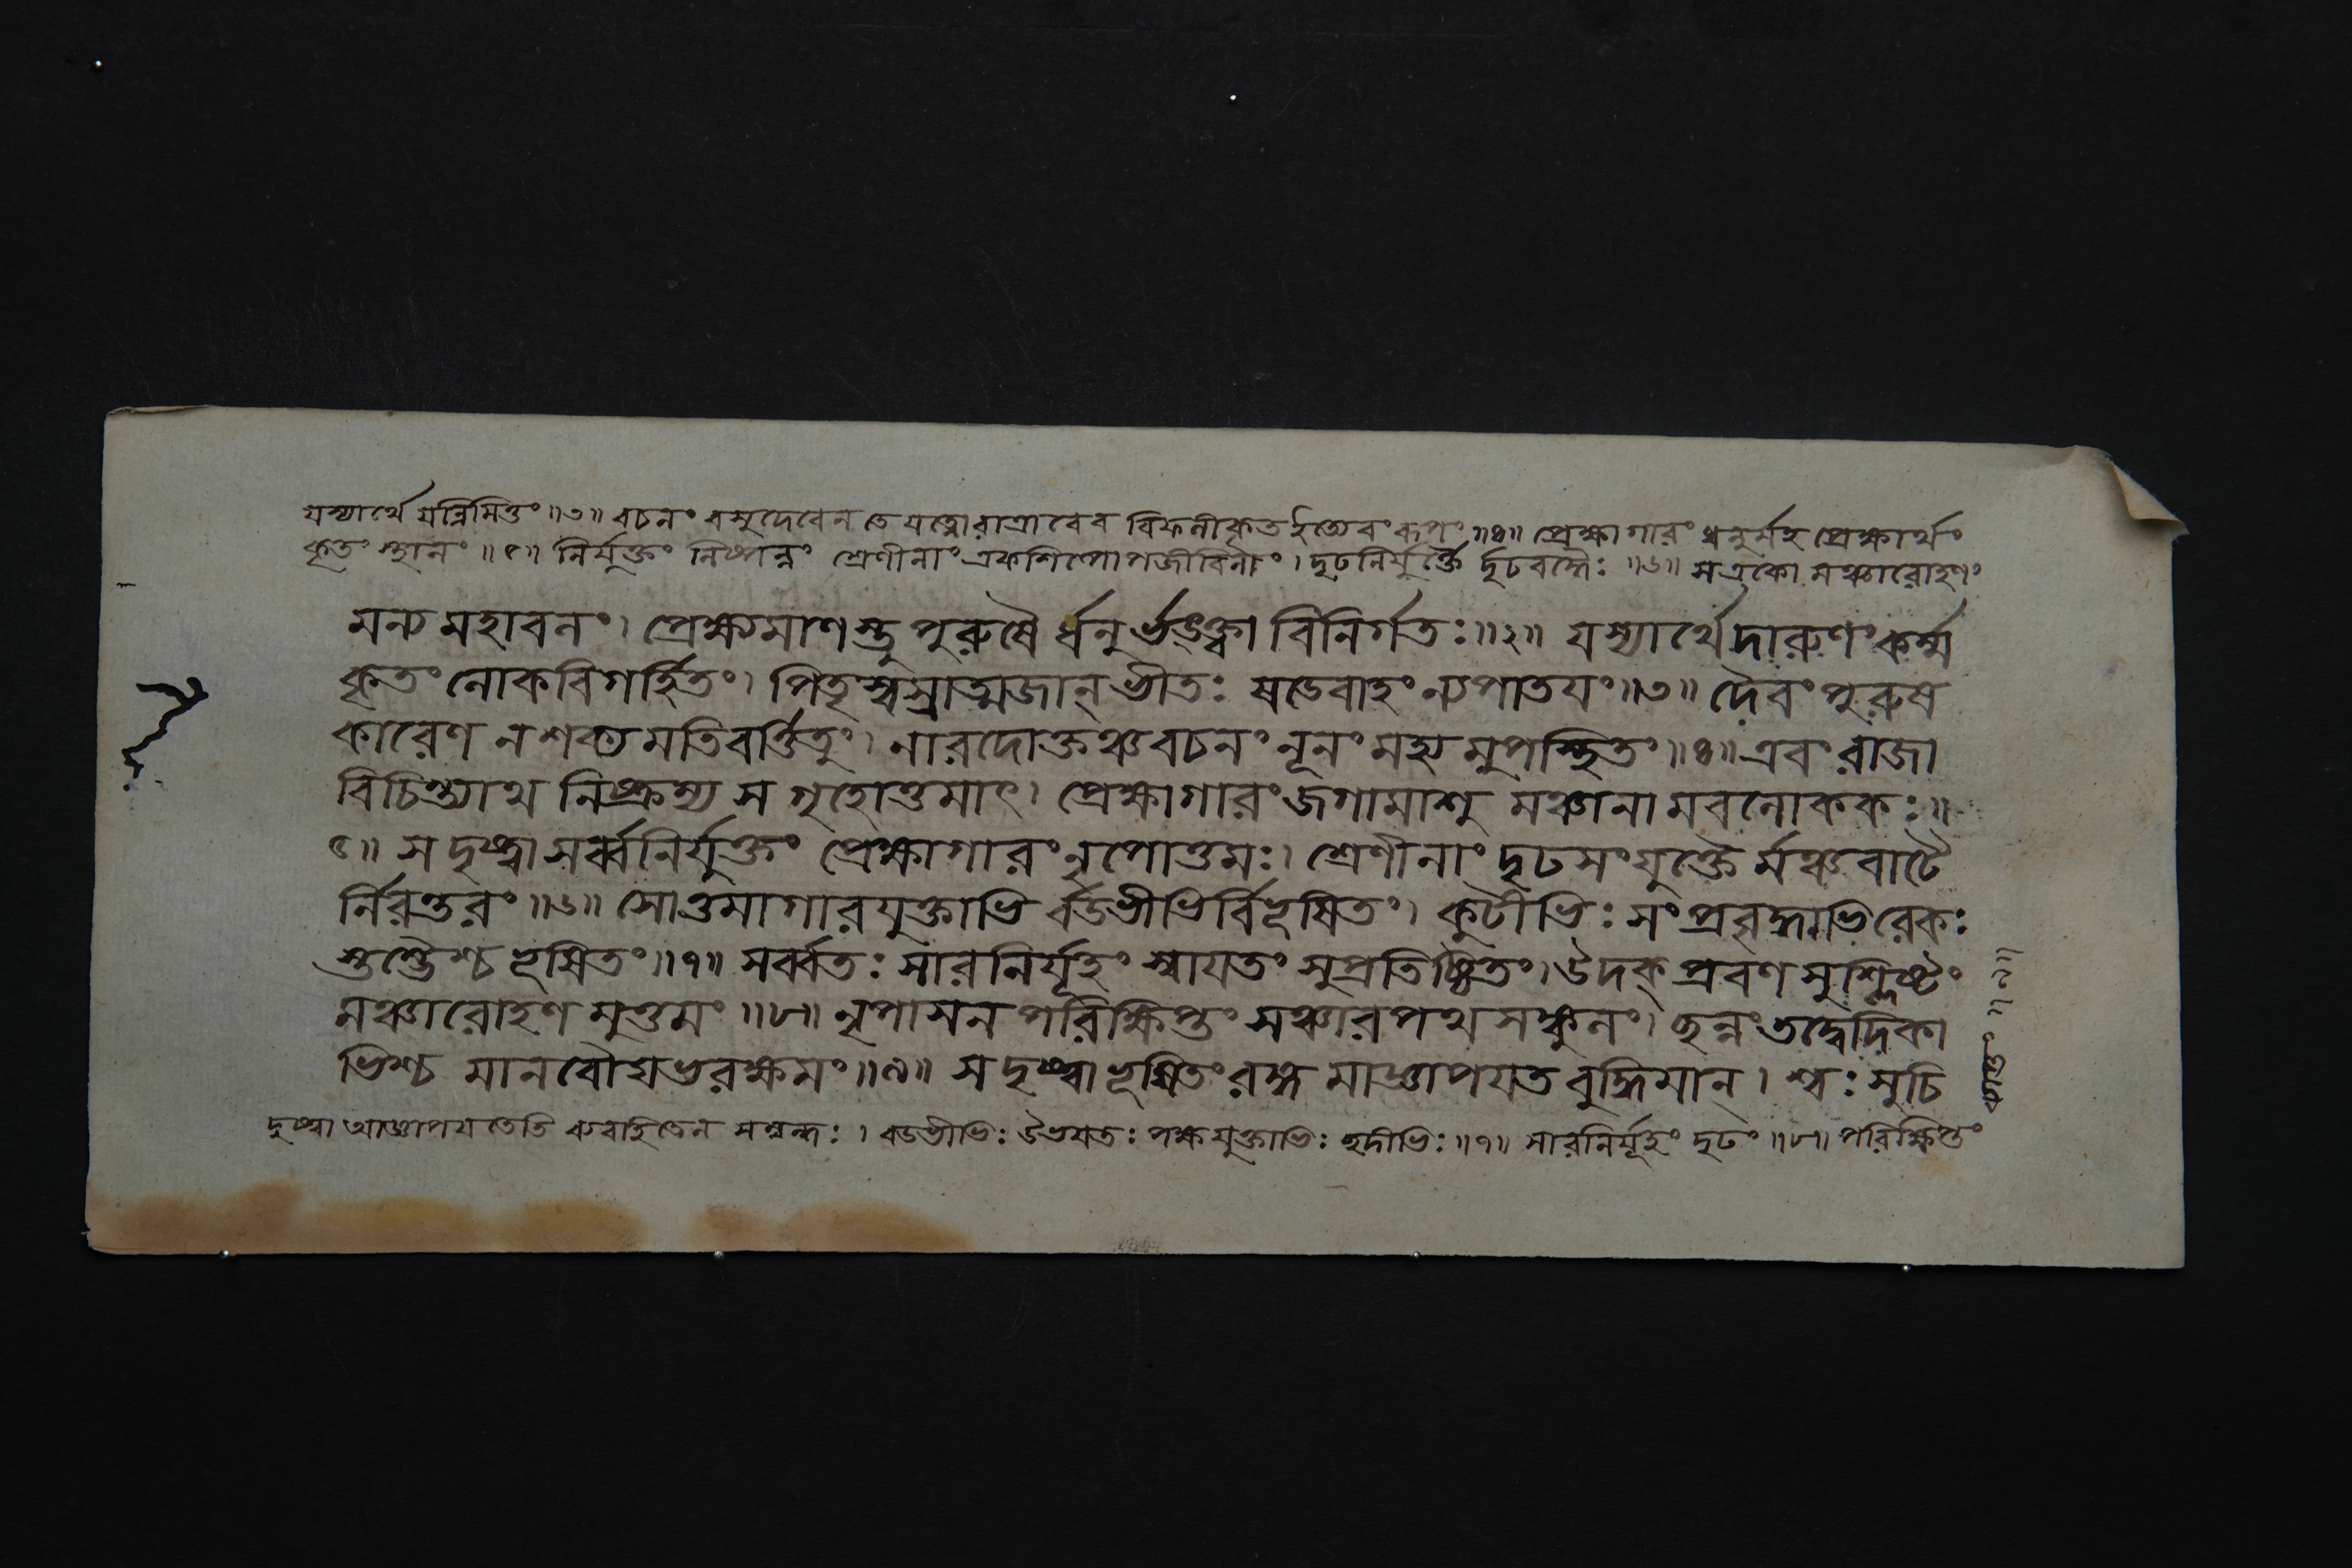 যস্যার্থে যন্নিমিত্তং ॥৩॥ বচনং বসুদেবেন তে যত্নোরাত্রাবেব বিফলীকৃত ইত্যেবংরূপং ॥৪॥ প্রেক্ষাগারং ধনুর্মহ প্রেক্ষার্থং
কৃতং স্থানং ॥৫॥ নির্যুক্তং নিষ্পন্নং শ্রেণীনাং একশিল্পোপজীবিনাং । দৃঢনির্যুক্তৈ র্দৃঢবদ্ধৈঃ ॥৬॥ মঞ্চারোহণং
মন্য মহাবলং । প্রেক্ষ্যমাণস্তু পুরুষৈ র্ধনুর্ভঙ্ক্ত্বা বিনির্গতঃ ॥২॥ যস্যার্থে দারুণং কর্ম্ম
কৃতং লোকবিগর্হিতং । পিতৃস্বস্রাত্মজান্ ভীতঃ ষডেবাহং ন্যপাতযং ॥৩॥ দৈবং পুরুষ
কারেণ ন শক্য মতিবর্ত্তিতুং । নারদোক্তঞ্চ বচনং নূনং মহ্য মুপস্থিতং ॥৪॥ এবং রাজা
বিচিন্ত্যাথ নিষ্ক্রম্য স গৃহোত্তমাৎ । প্রেক্ষাগারং জগামাশু মঞ্চানা মবলোককঃ ॥
৫॥ স দৃষ্ট্বা সর্ব্বনির্যুক্তং প্রেক্ষাগারং নৃপোত্তমঃ । শ্রেণীনাং দৃঢসংযুক্তৈ র্মঞ্চবাটৈ
র্নিরন্তরং ॥৬॥ সোত্তমাগারযুক্তাভি র্বডভীভির্বিভূষিতং । কুটীভিঃ সংপ্রবৃদ্ধাভিরেকঃ
স্তম্ভৈশ্চ ভূষিতং ॥৭॥ সর্ব্বতঃ সারনির্যূহং স্বাযতং সুপ্রতিষ্ঠিতং । উদক্ প্রবণ সুশ্লিষ্টং
মঞ্চারোহণ মুত্তমং ॥৮॥ নৃপাসন পরিক্ষিপ্তং সঞ্চারপথ সঙ্কুলং । ছন্নং তদ্বেদিকা
ভিশ্চ মানবৌঘভরক্ষমং ॥৯॥ স দৃষ্ট্বা ভূষিতং রঙ্গ মাজ্ঞাপযত বুদ্ধিমান্ । শ্বঃ সুচি
দৃষ্ট্বা আজ্ঞাপযতেতি ব্যবহিতেন সম্বন্ধঃ । বডভীভিঃ উভযতঃ পক্ষযুক্তাভিঃ ছদীভিঃ ॥৭॥ সারনির্যূহং দৃঢং ॥৮॥ পরিক্ষিপ্তং